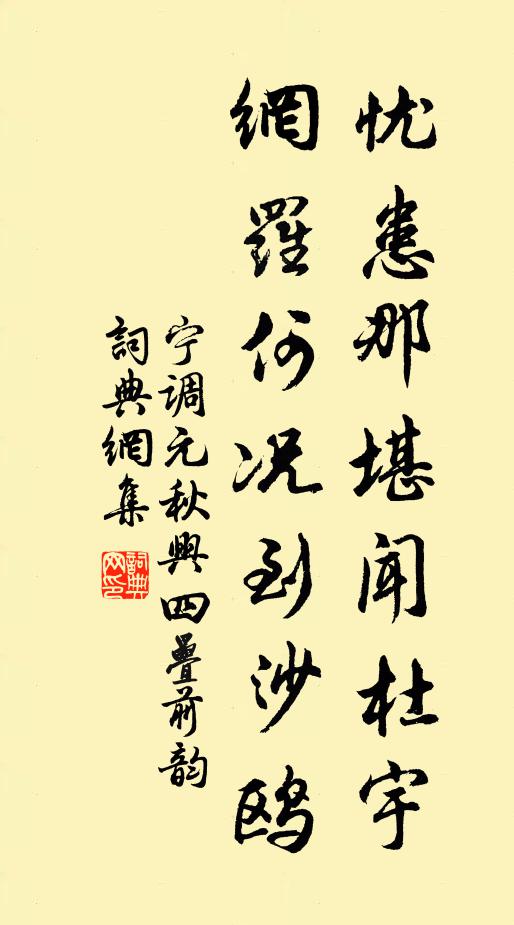 忧患那堪闻杜宇
網羅何况到沙鸥
宁调元秋興四疊前韵
詞典網集
詞典网印